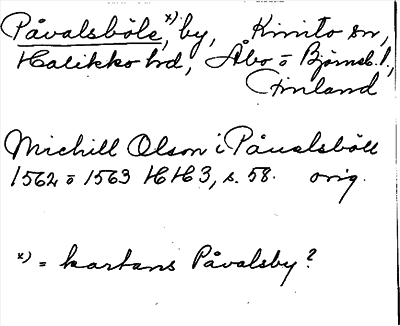 Påvalsböle,ˣ⁾ by, Kimito sn,
Halikko hd, Åbo o Björneb. l,
Finland
Michill Olson i Påualsböll
1562 o 1563 HH3, s. 58. orig.
ˣ⁾ = kartans Påvalsby?